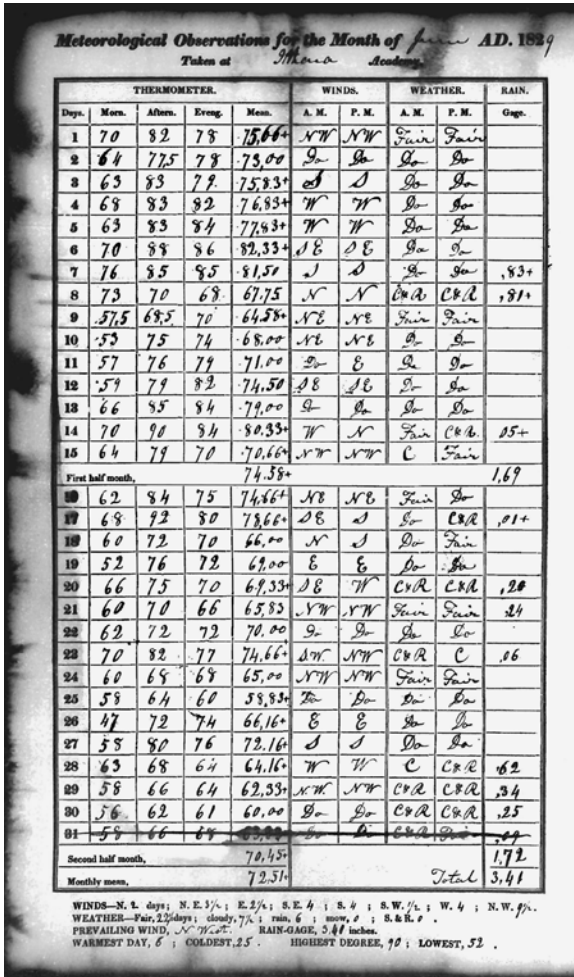 Meteorological Observations for the Month of June AD. 1829
Taken at Ithaca Academy.
THERMOMETER. WINDS. WEATHER. RAIN.
Days. Morn. Aftern. Eveng. Mean. A. M. P. M. A. M. P. M. Gage.
1 70 82 78 75,66+ NW NW Fair Fair
2 64 77,5 78 73,00 Do Do Do Do
3 63 83 79 75,83+ S S Do Do
4 68 83 82 76,83+ W W Do Do
5 63 83 84 77,83+ W W Do Do
6 70 88 86 82,33+ SE SE Do Do
7 76 85 85 81,50 S S Do Do ,83+
8 73 70 68 67.75 N N C&R C&R ,81+
9 57,5 68,5 70 64.58+ NE NE Fair Fair
10 53 75 74 68,00 NE NE Do Do
11 57 76 79 71.00 Do E Do Do
12 59 79 82 74.50 SE SE Do Do
13 66 85 84 79,00 Do Do Do Do
14 70 90 84 80.33+ W N Fair C&R. 05+
15 64 79 70 70,66+ NW NW C Fair
First half month, 74.58+ 1,69
16 62 84 75 74,66+ NE NE Fair Do
17 68 92 80 78,66+ SE S Do C&R ,01+
18 60 72 70 66,00 N S Do Fair
19 52 76 72 69,00 E E Do Do
20 66 75 70 69.33+ SE W C&R C&R ,20
21 60 70 66 65,83 NW NW Fair Fair .24
22 62 72 72 70.00 Do Do Do Do
23 70 82 77 74.66+ S.W. NW C&R C ,06
24 60 68 68 65,00 NW NW Fair Fair
25 58 64 60 58,83+ Do Do Do Do
26 47 72 74 66,16+ E E Do Do
27 58 80 76 72.16+ S S Do Do
28 63 68 64 64.16+ W W C C&R ,62
29 58 66 64 62,33+ N.W. NW C&R C&R ,34
30 56 62 61 60.00 Do Do C&R C&R ,25
31 58 66 68
Second half month, 70,45+ 1,72
Monthly mean, 72.51+ Total 3,41
WINDS—N. 2 days; N. E. 3½; E. 2½; S. E. 4; S. 4; S. W. ½; W. 4; N. W. 9½.
WEATHER—Fair, 22½ days; cloudy, 7½; rain, 6; snow, 0; S. & R. 0.
PREVAILING WIND, N West. RAIN-GAGE, 3.41 inches.
WARMEST DAY, 6; COLDEST, 25. HIGHEST DEGREE, 90; LOWEST, 52.